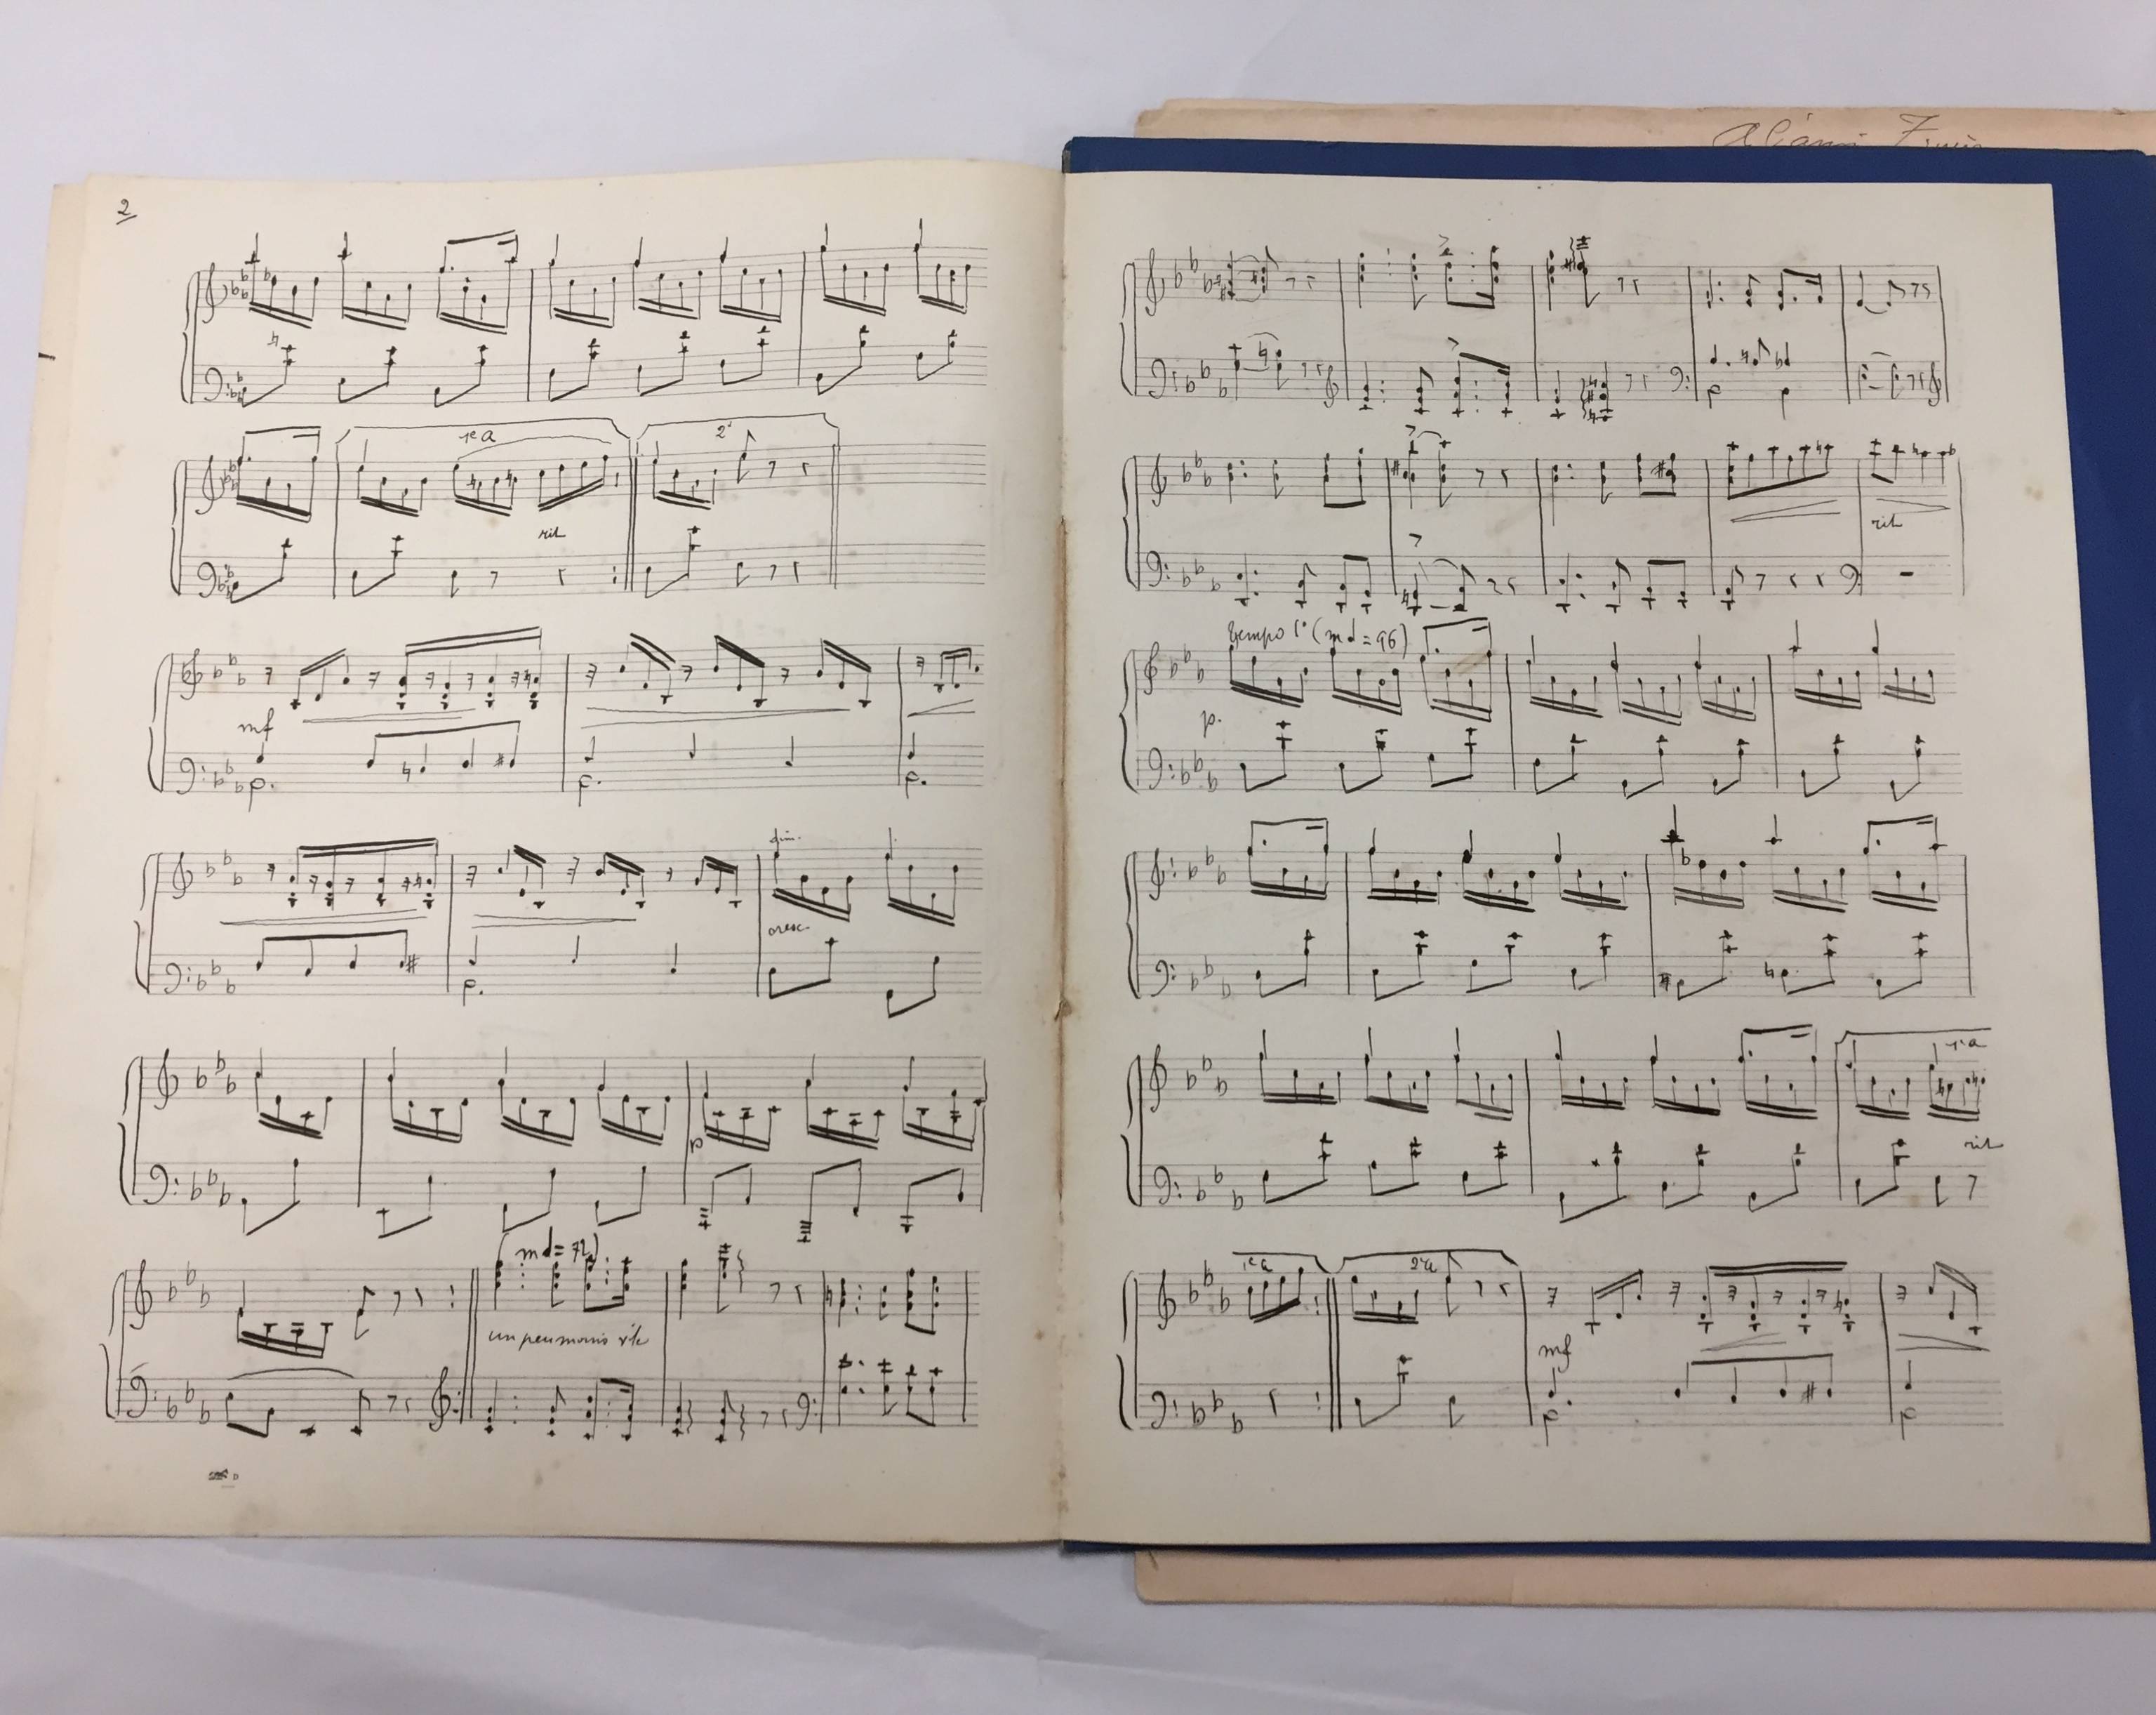 2
1e a
2a
rit
mf
dim.
cresc.
p
(md = 72)
un peu moins vite
rit
Tempo 1° (md = 96)
p.
1e a
rit
1e a
2e a
mf